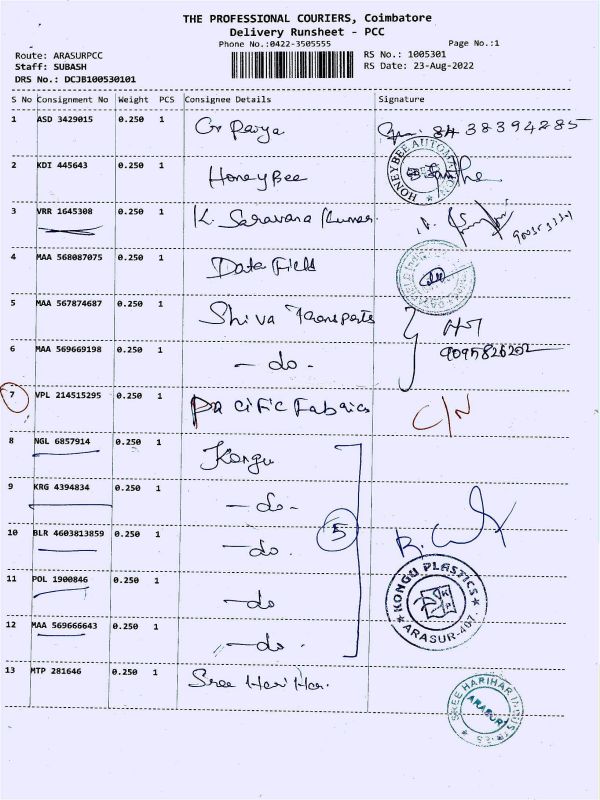 THE PROFESSIONAL COURIERS, Coimbatore
Delivery Runsheet - PCC
Phone No.:0422-3505555
Page No.:1
Route: ARASURPCC
RS No.: 1005301
Staff: SUBASH
RS Date: 23-Aug-2022
DRS No.: DCJB100530101
S No Consignment No Weight PCS Consignee Details Signature
1 ASD 3429015 0.250 1 8438394285
2 KDI 445643 0.250 1 HoneyBee
HONEYBEE
3 VRR 1645308 0.250 1 K. Saravana Kumar
4 MAA 568087075 0.250 1 Data Field
5 MAA 567874687 0.250 1 Shiva Transports
6 MAA 569669198 0.250 1 - do -
9095826202
7 VPL 214515295 0.250 1 Pacific Fabrics C/N
8 NGL 6857914 0.250 1 Kongu
9 KRG 4394834 0.250 1 - do -
5
10 BLR 4603813859 0.250 1 - do .
11 POL 1900846 0.250 1 - do
KONGU PLASTICS
ARASUR-407
KP
12 MAA 569666643 0.250 1 - do .
13 MTP 281646 0.250 1 Sree Hari Har.
SREE HARIHAR
ARASUR